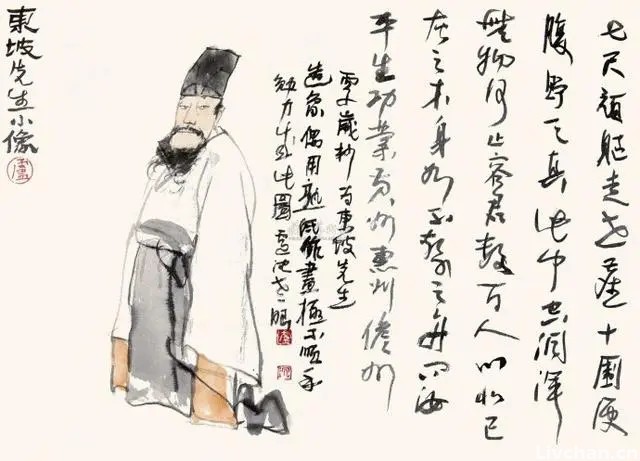 七尺頑軀走世塵十圍便
腹貯天真此中空洞渾
無物何止容君數百人心似已
灰之木身如不繫之舟問汝
平生功業黃州惠州儋州
歲杪為東坡先生
造象偶用熟紙作畫極不順手
勉力此圖
東坡先生小像
Livchan.cn